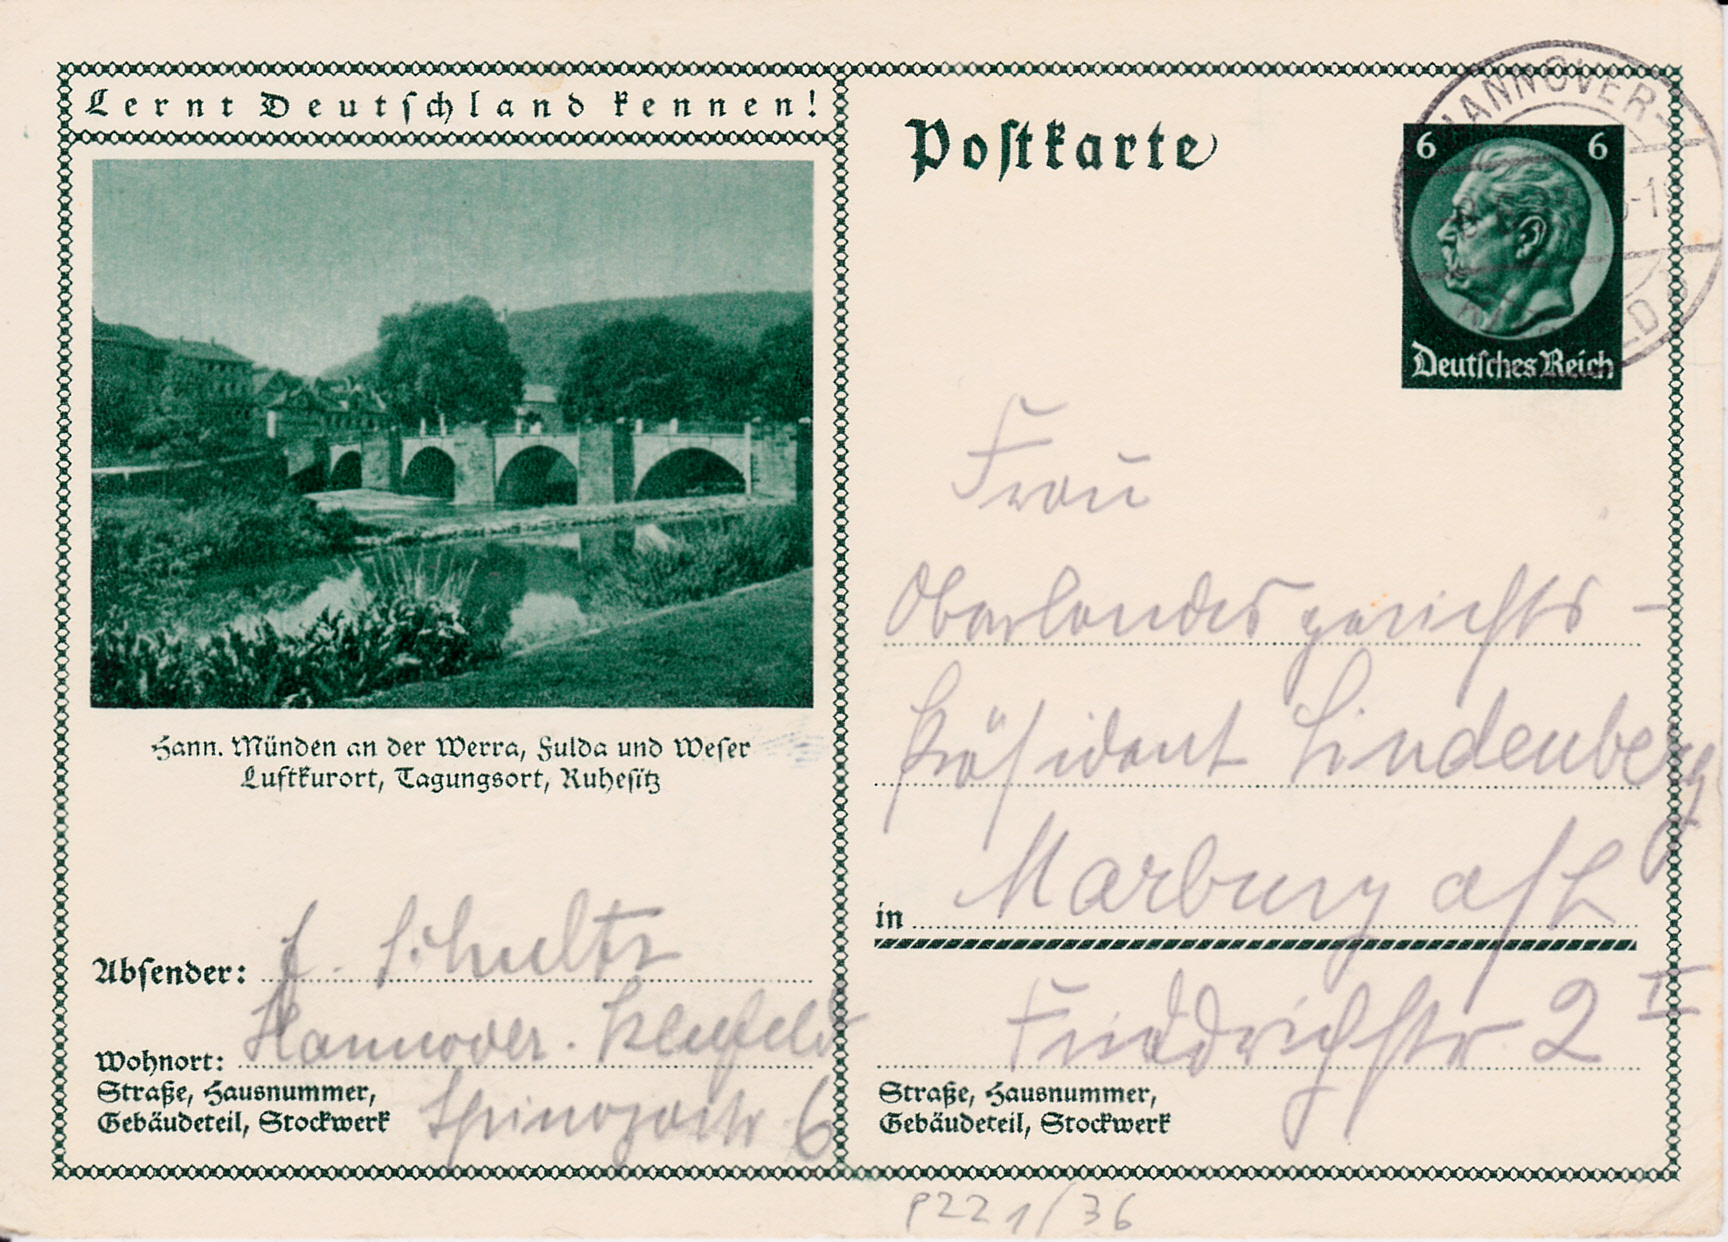 Lernt Deutschland kennen!
Hann. Münden an der Werra, Fulda und Weser
Luftkurort, Tagungsort, Ruhesitz
Absender: f. Schultz
Wohnort: Hannover-Kleefeld
Straße, Hausnummer,
Gebäudeteil, Stockwerk
Spinozastr 6
Postkarte
HANNOVER-
6 6
Deutsches Reich
Frau
Oberlandesgerichts-
präsident Lindenberg
in Marburg a/L
Friedrichstr 2 II
Straße, Hausnummer,
Gebäudeteil, Stockwerk
P221/36